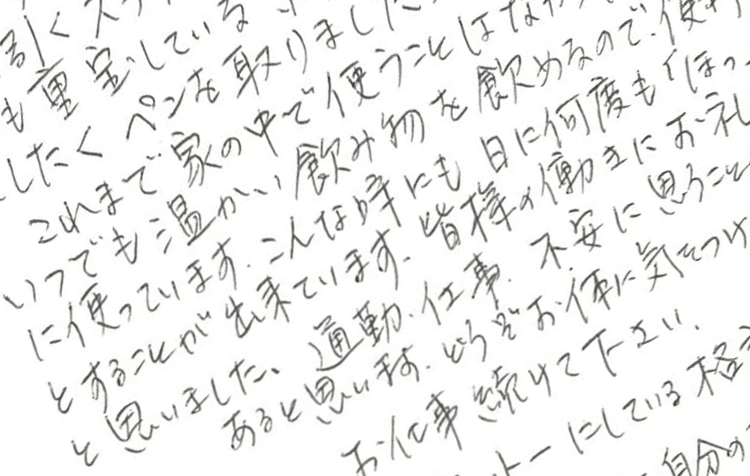 引くス
も重宝している
したくペンを取りました
これまで家の中で使うことはなか
いつでも温かい飲み物を飲めるので、便
に使っています。こんな時にも日に何度も「ほっ
とすることが出来ています。皆様の働きにお礼
と思いました。通勤、仕事、不安に思うこと
あると思います。どうぞお体に気をつけ
お仕事続けて下さい。
トーにしている格
自分の